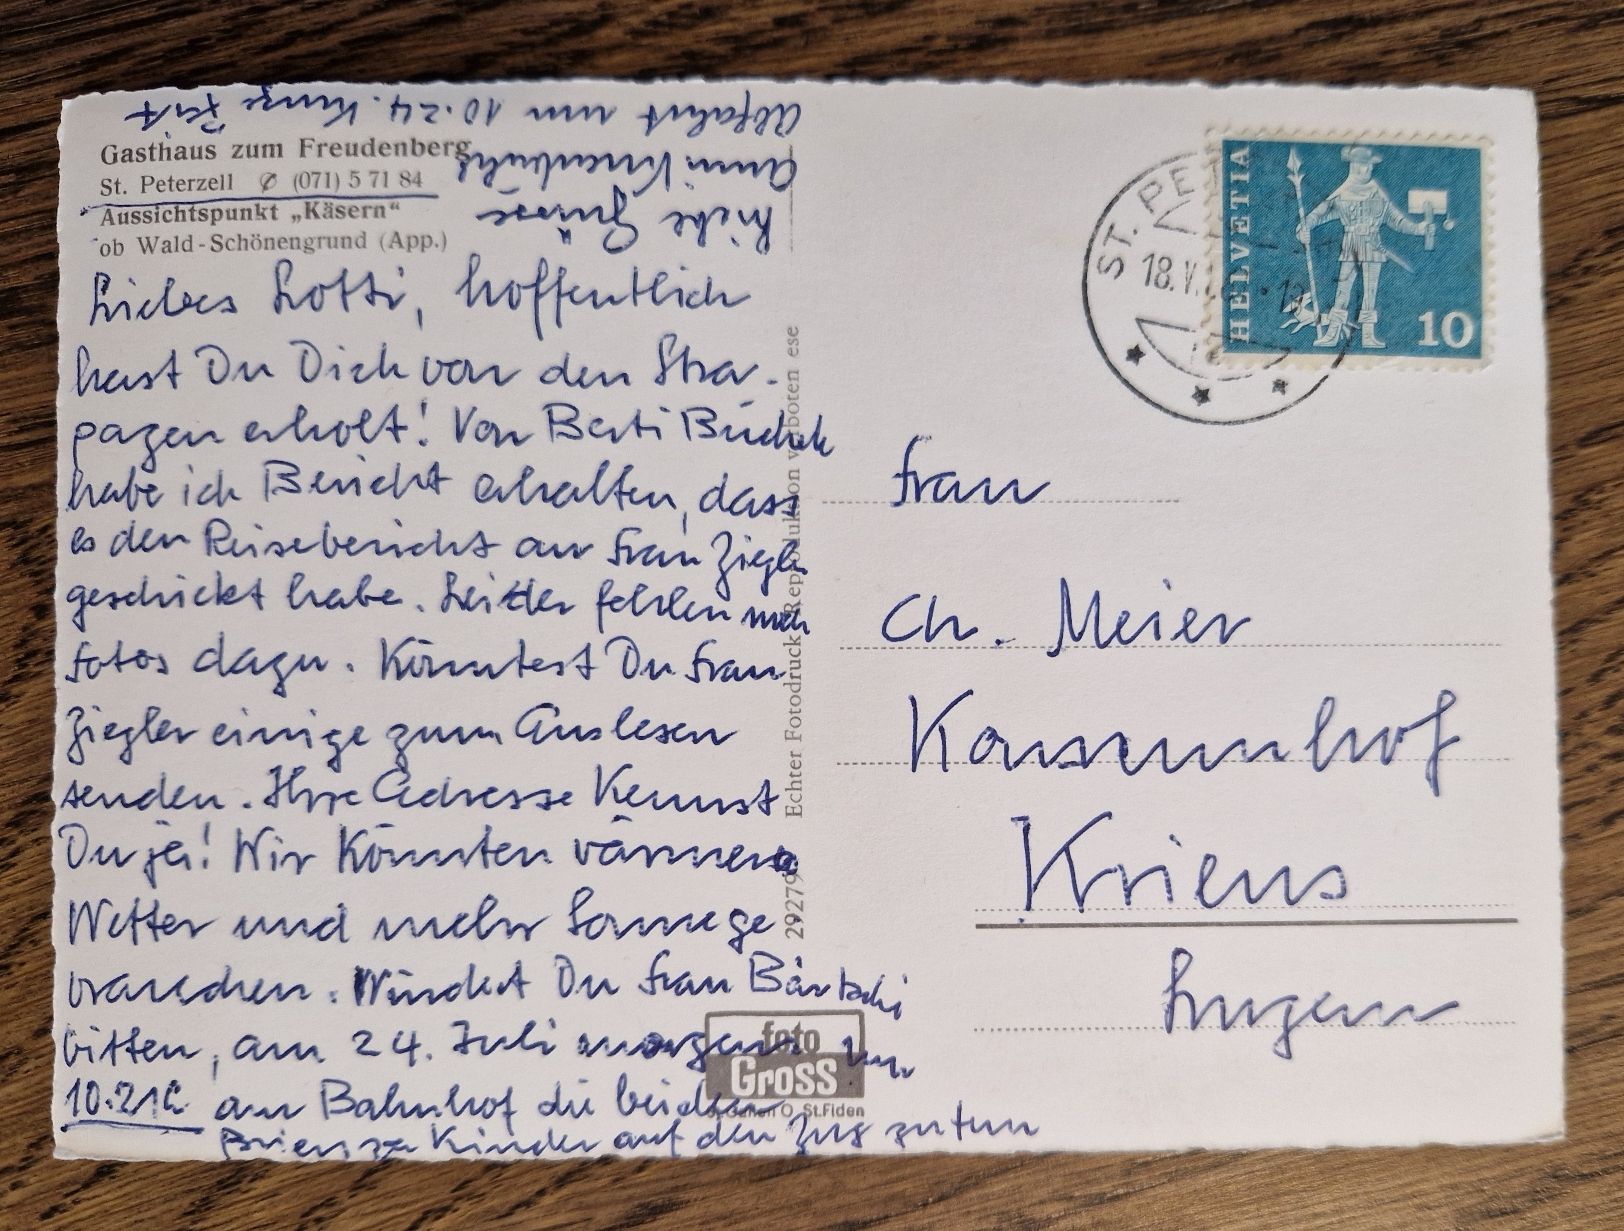 Gasthaus zum Freudenberg
St. Peterzell ✆ (071) 5 71 84
Aussichtspunkt „Käsern“
ob Wald-Schönengrund (App.)
Liebes Lotti, hoffentlich
hast Du Dich von den Stra-
pazen erholt! Von Berti
habe ich Bericht erhalten, dass
es den Reisebericht an Frau Ziegler
geschickt habe. Leider fehlen
Fotos dazu. Könntest Du Frau
Ziegler einige zum Auslesen
senden. Ihre Adresse kennst
Du ja! Wir könnten
Wetter und mehr Sonne ge
brauchen. Würdest Du Frau Bärtschi
bitten, am 24. Juli morgens um
10.21 am Bahnhof die beiden
Brienzer Kinder auf den Zug zu tun
Abfahrt um 10.24. Kurze Zeit
Liebe Grüsse
Anni
Echter Fotodruck Reproduktion verboten ese
29279
foto
Gross
St. Gallen O, St. Fiden
ST. PE
18.V.
HELVETIA
10
Frau
Ch. Meier
Konsumhof
Kriens
Luzern